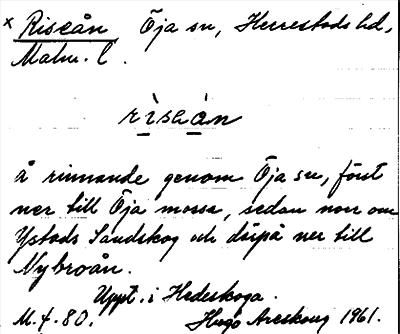 x Riseån Öja sn, Herrestads hd,
Malm. l.
rìseàn
å rinnande genom Öja sn, först
ner till Öja mossa, sedan norr om
Ystads Sandskog och därpå ner till
Nybroån.
Uppt. i Hedeskoga.
M.4.80. Hugo Areskoug 1961.